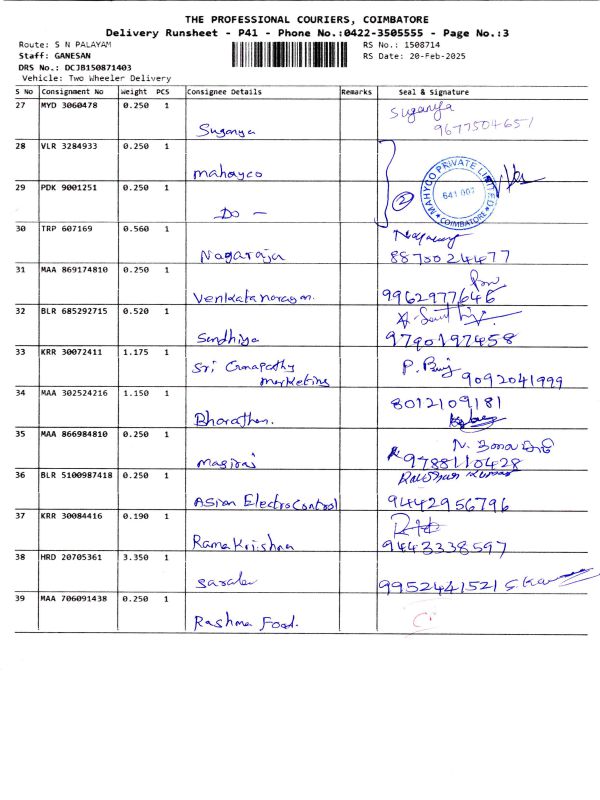 THE PROFESSIONAL COURIERS, COIMBATORE
Delivery Runsheet - P41 - Phone No.:0422-3505555 - Page No.:3
Route: S N PALAYAM
RS No.: 1508714
Staff: GANESAN
RS Date: 20-Feb-2025
DRS No.: DCJB150871403
Vehicle: Two Wheeler Delivery
S No Consignment No Weight PCS Consignee Details Remarks Seal & Signature
27 MYD 3060478 0.250 1 Suganya
Suganya 9677504651
28 VLR 3284933 0.250 1
mahayco
29 PDK 9001251 0.250 1
Do - 2 MAHYCO PRIVATE LIMITED 641 007 COIMBATORE
30 TRP 607169 0.560 1
Nagaraja 8870024477
31 MAA 869174810 0.250 1
Venkatanarayan. 9962977646
32 BLR 685292715 0.520 1
Sandhiya 9790197458
33 KRR 30072411 1.175 1
Sri Ganapathy
marketing 9092041999
34 MAA 302524216 1.150 1 8012109181
Bharathan.
35 MAA 866984810 0.250 1
9788110428
36 BLR 5100987418 0.250 1
Asian Electro Control 9442956796
37 KRR 30084416 0.190 1
Rama Krishna 9443338597
38 HRD 20705361 3.350 1
Sarala 9952441521
39 MAA 706091438 0.250 1
Rashma Food.